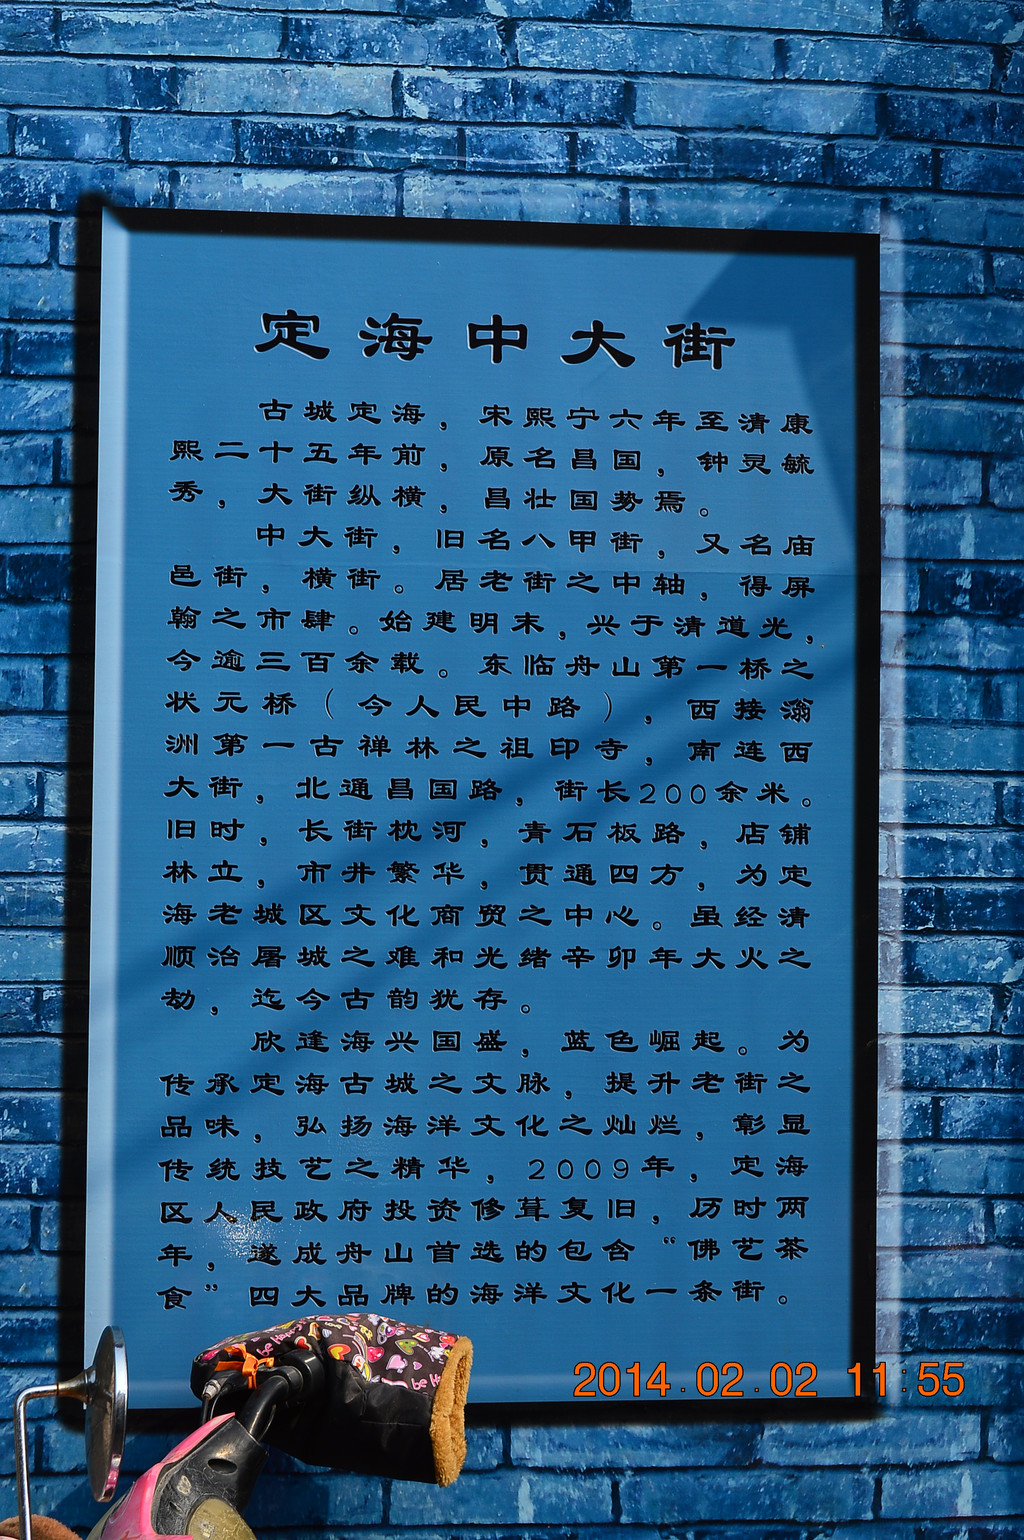 定海中大街
古城定海，宋熙宁六年至清康
熙二十五年前，原名昌国，钟灵毓
秀，大街纵横，昌壮国势焉。
中大街，旧名八甲街，又名庙
邑街，横街。居老街之中轴，得屏
翰之市肆。始建明末，兴于清道光，
今逾三百余载。东临舟山第一桥之
状元桥（今人民中路），西接滃
洲第一古禅林之祖印寺，南连西
大街，北通昌国路，街长200余米。
旧时，长街枕河，青石板路，店铺
林立，市井繁华，贯通四方，为定
海老城区文化商贸之中心。虽经清
顺治屠城之难和光绪辛卯年大火之
劫，迄今古韵犹存。
欣逢海兴国盛，蓝色崛起。为
传承定海古城之文脉，提升老街之
品味，弘扬海洋文化之灿烂，彰显
传统技艺之精华，2009年，定海
区人民政府投资修葺复旧，历时两
年，遂成舟山首选的包含“佛艺茶
食”四大品牌的海洋文化一条街。
2014.02.02 11:55